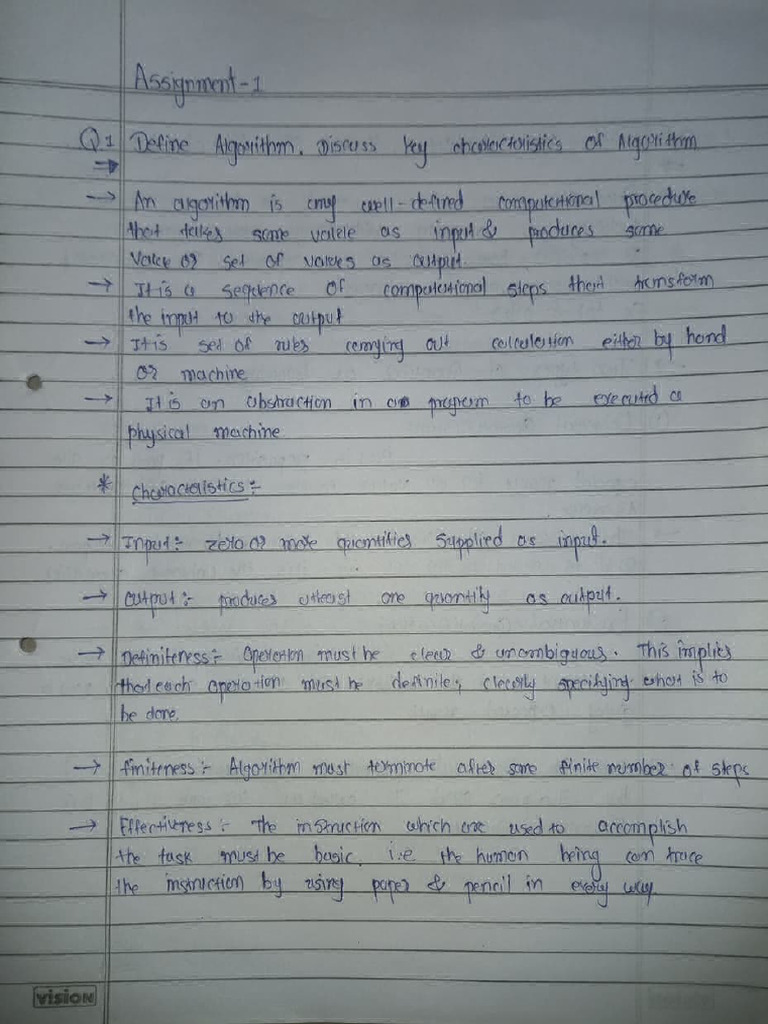 Assignment-1
Q.1 Define Algorithm. Discuss key characteristics of Algorithm
→ An algorithm is any well-defined computational procedure
that takes some value as input & produces some
value or set of values as output.
→ It is a sequence of computational steps that transform
the input to the output
→ It is set of rules carrying out calculation either by hand
or machine
→ It is an abstraction in a program to be executed a
physical machine
* Characteristics :-
→ Input :- zero or more quantities supplied as input.
→ Output :- produces atleast one quantity as output.
→ Definiteness :- Operation must be clear & unambiguous. This implies
that each operation must be definite; clearly specifying what is to
be done.
→ finiteness :- Algorithm must terminate after some finite number of steps
→ Effectiveness :- The instruction which are used to accomplish
the task must be basic. i.e the human being can trace
the instruction by using paper & pencil in every way
vision